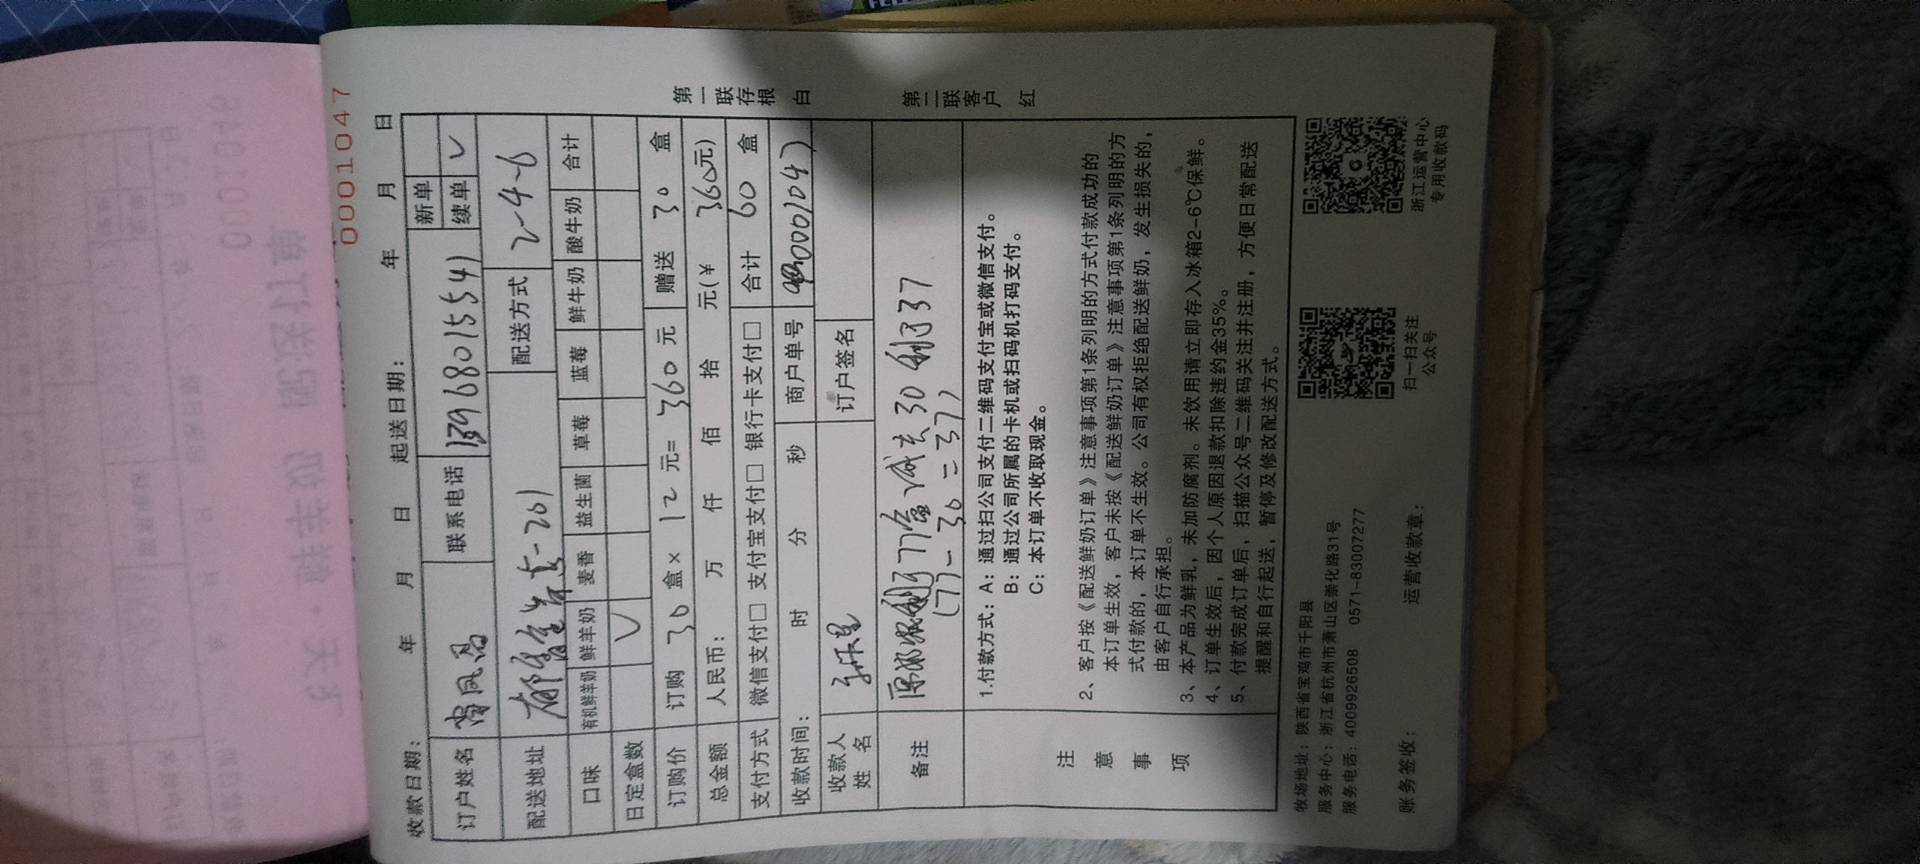 0001047
收款日期： 年 月 日 起送日期： 年 月 日
订户姓名 联系电话 13968015541 新单
续单 ✓
配送地址 -201 配送方式 2-4-6
口味 有机鲜羊奶 鲜羊奶 麦香 益生菌 草莓 蓝莓 鲜牛奶 酸牛奶 合计
日定盒数 ✓
订购价 订购 30 盒× 12 元= 360 元 赠送 30 盒
总金额 人民币： 万 仟 佰 拾 元(￥ 360元)
支付方式 微信支付□ 支付宝支付□ 银行卡支付□ 合计 60 盒
收款时间： 时 分 秒 商户单号 0001047
收款人
姓 名
订户签名
备注 77盒减去30剩37
(77-30=37)
注意事项
1.付款方式：A：通过扫公司支付二维码支付宝或微信支付。
B：通过公司所属的卡机或扫码机打码支付。
C：本订单不收取现金。
2、客户按《配送鲜奶订单》注意事项第1条列明的方式付款成功的
本订单生效，客户未按《配送鲜奶订单》注意事项第1条列明的方
式付款的，本订单不生效。公司有权拒绝配送鲜奶，发生损失的，
由客户自行承担。
3、本产品为鲜乳，未加防腐剂。未饮用请立即存入冰箱2-6℃保鲜。
4、订单生效后，因个人原因退款扣除违约金35%。
5、付款完成订单后，扫描公众号二维码关注并注册，方便日常配送
提醒和自行起送，暂停及修改配送方式。
第一联存根 白
第二联客户 红
牧场地址：陕西省宝鸡市千阳县
服务中心：浙江省杭州市萧山区崇化路31号
服务电话：4009926508 0571-83007277
扫一扫关注
公众号
浙江运营中心
专用收款码
账务签收： 运营收款章：